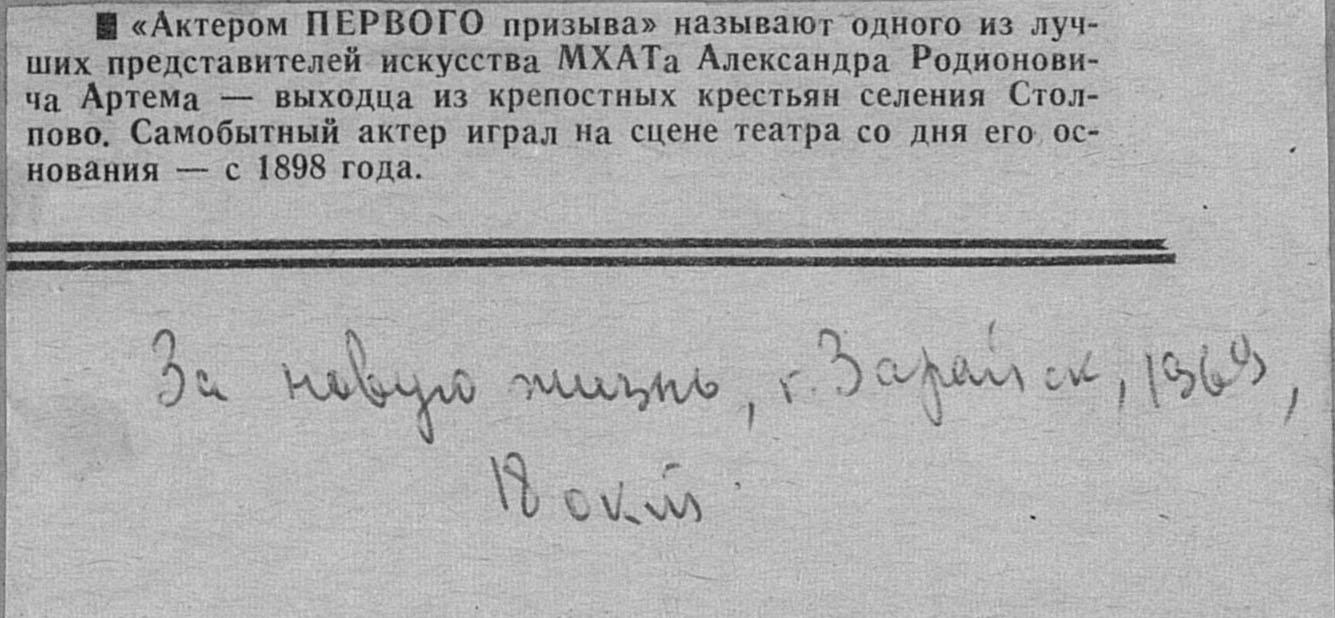 ■ «Актером ПЕРВОГО призыва» называют одного из луч-
ших представителей искусства МХАТа Александра Родионови-
ча Артема — выходца из крепостных крестьян селения Стол-
пово. Самобытный актер играл на сцене театра со дня его ос-
нования — с 1898 года.
За новую жизнь, г. Зарайск, 1969,
18 окт